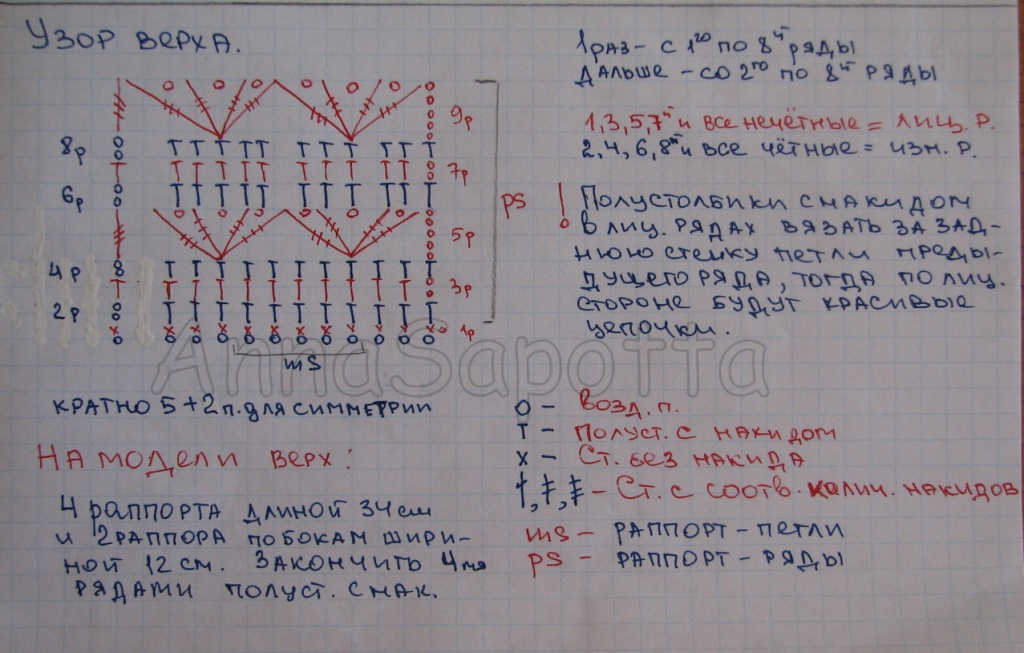 Узор верха.
1 раз - с 1го по 8й ряды
дальше - со 2го по 8й ряды
1,3,5,7й и все нечётные = лиц. р.
2,4,6,8й и все чётные = изн. р.
! Полустолбики с накидом
в лиц. рядах вязать за зад-
нюю стенку петли преды-
дущего ряда, тогда по лиц.
стороне будут красивые
цепочки.
9р
8р
7р
6р
ps
5р
4р
3р
2р
1р
ms
AnnaSapotta
кратно 5+2п. для симметрии
На модели верх:
4 раппорта длиной 34 см
и 2 раппора по бокам шири-
ной 12 см. Закончить 4мя
рядами полуст. с нак.
o - возд. п.
т - Полуст. с накидом
x - Ст. без накида
- Ст. с соотв. колич. накидов
ms - раппорт - петли
ps - раппорт - ряды